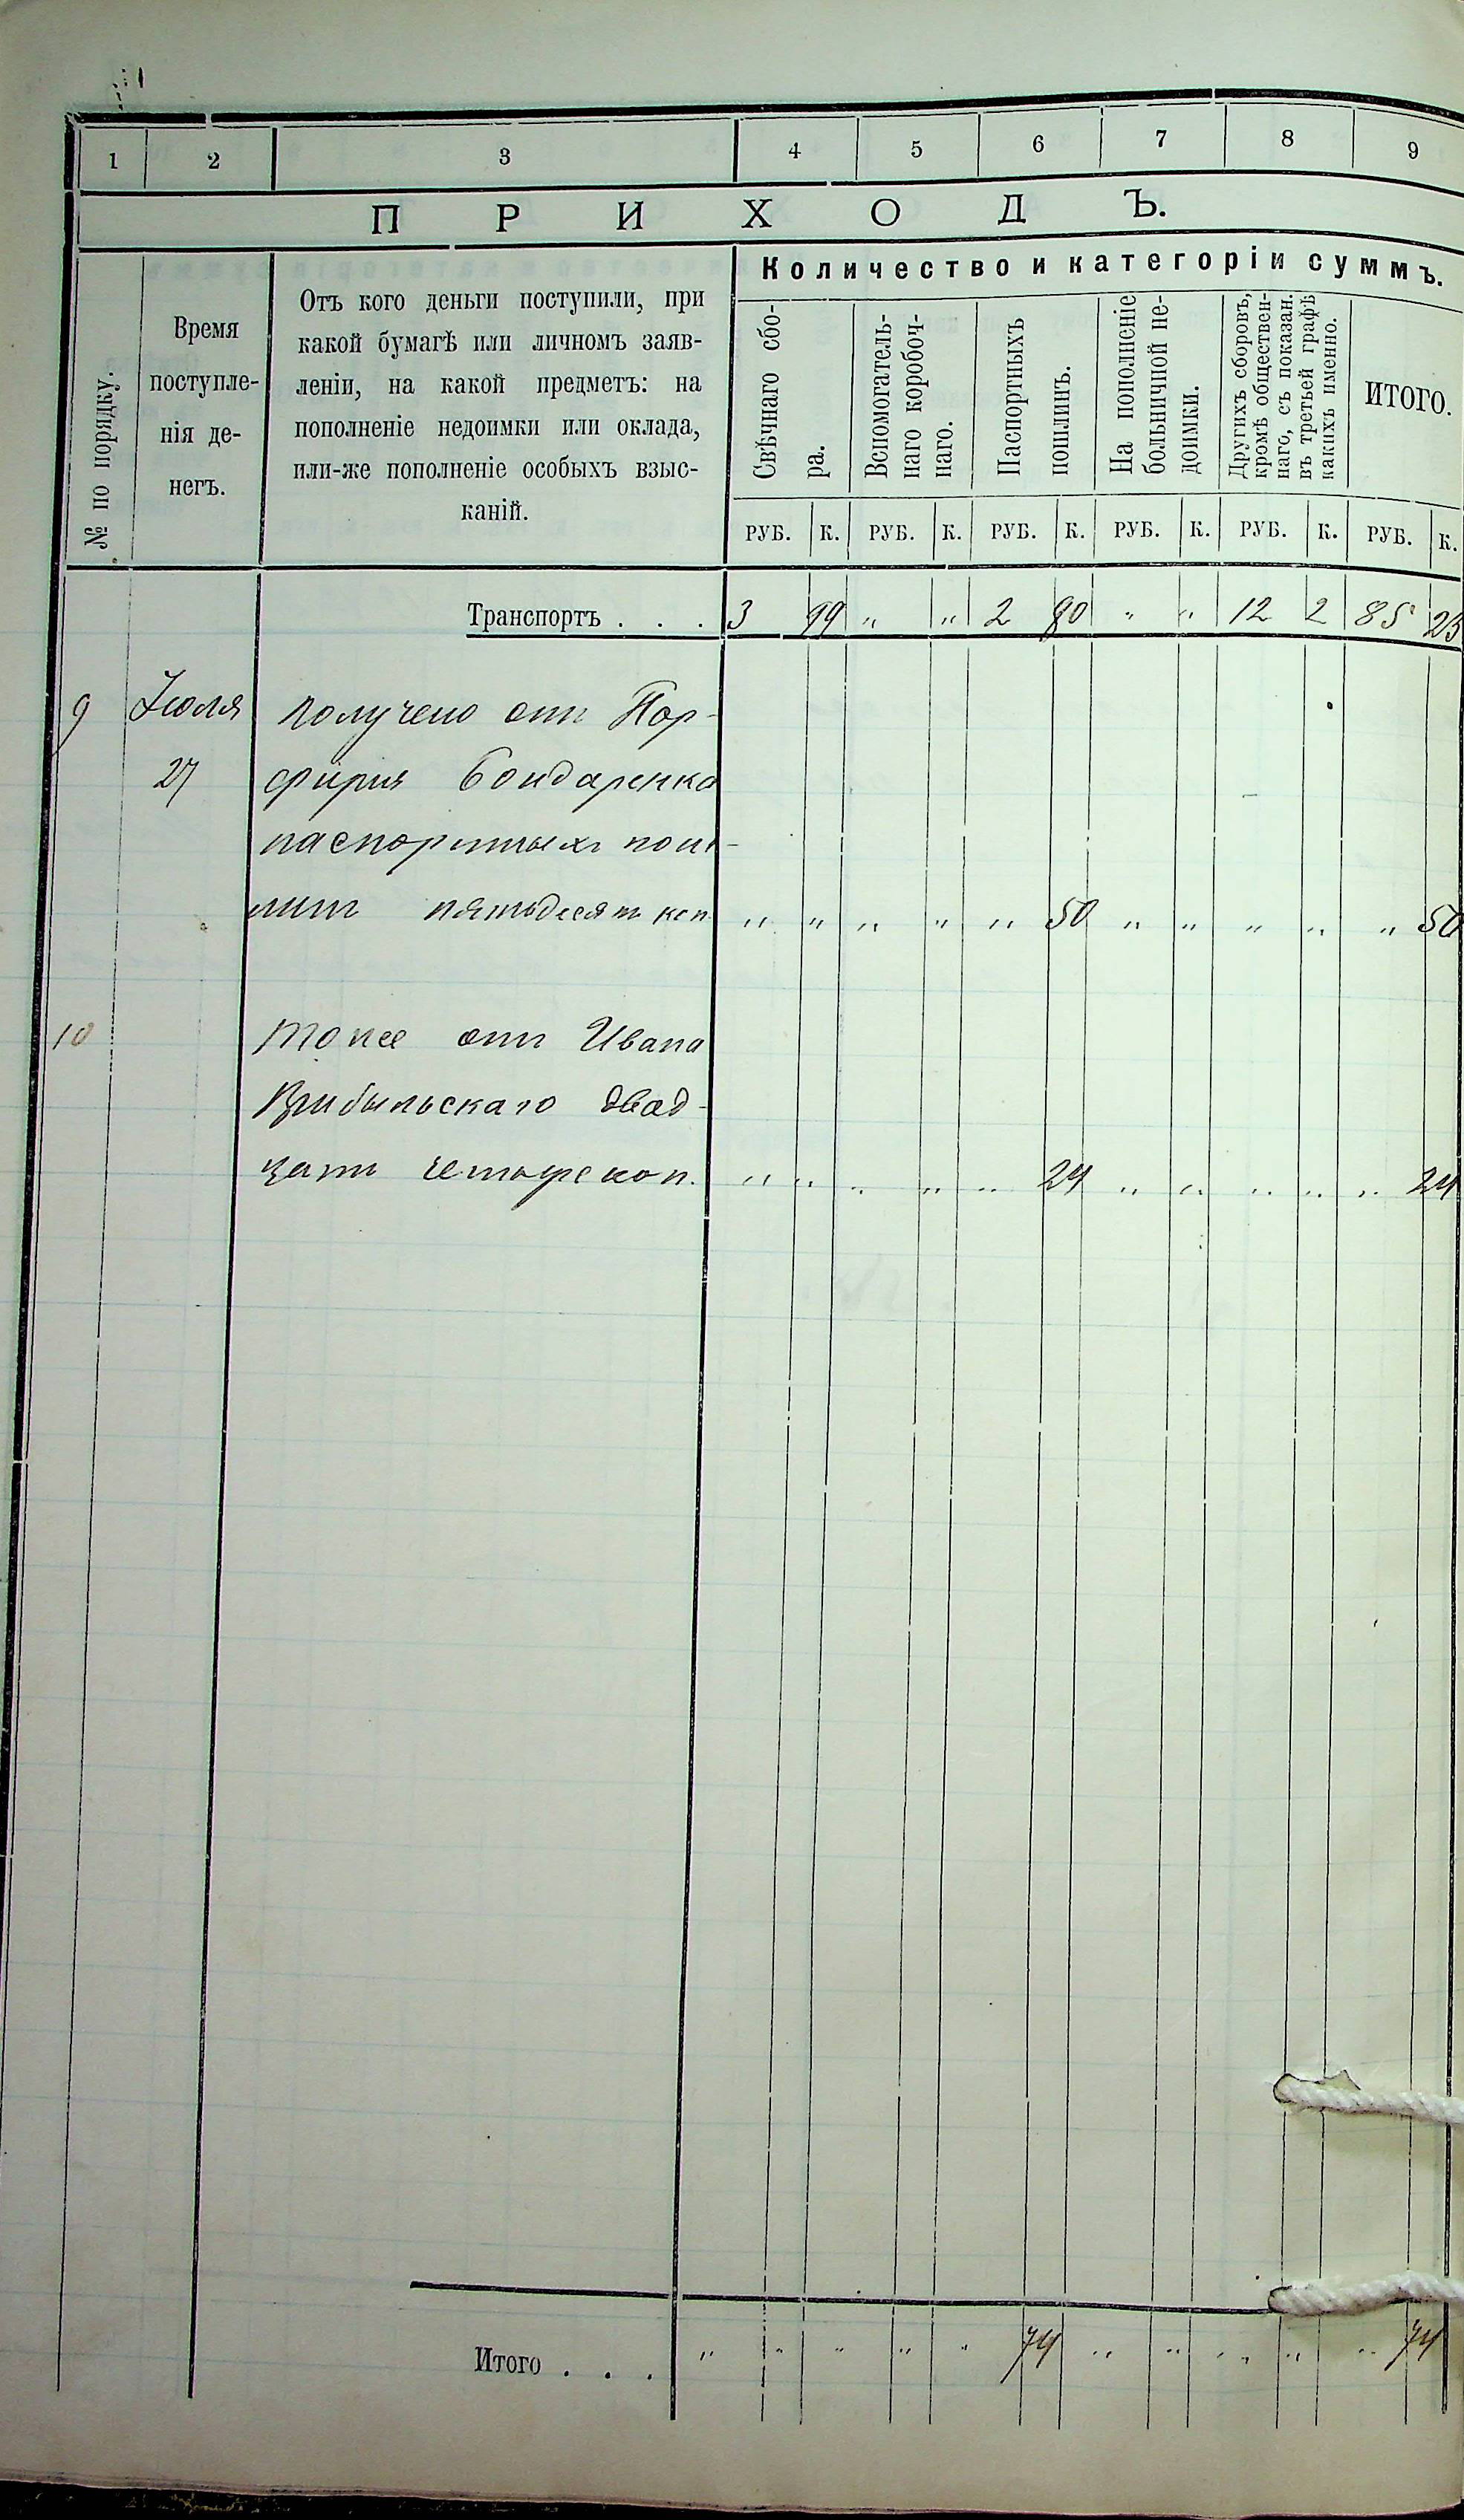 1 2 3 4 5 6 7 8 9
ПРИХОДЪ.
№ по порядку.
Время
поступле-
нія де-
негъ.
Отъ кого деньги поступили, при
какой бумагѣ или личномъ заяв-
леніи, на какой предметъ: на
пополненіе недоимки или оклада,
или-же пополненіе особыхъ взыс-
каній.
Количество и категоріи суммъ.
Свѣчнаго сбо-
ра.
Вспомогатель-
наго коробоч-
наго.
Паспортныхъ
пошлинъ.
На пополненіе
больничной не-
доимки.
Другихъ сборовъ,
кромѣ обществен-
наго, съ показан.
въ третьей графѣ
какихъ именно.
ИТОГО.
РУБ. К. РУБ. К. РУБ. К. РУБ. К. РУБ. К. РУБ. К.
Транспортъ . . . 3 99 " " 2 80 " " 12 2 85 23
9 Іюля получено отъ Пор-
27 фирія Бондаренка
паспортныхъ пош-
линъ пятьдесятъ коп. " " " " " 50 " " " " " 50
10 тоже отъ Ивана
двад-
цать четыре коп. " " " " " 24 " " " " " 24
Итого . . . " " " " " 74 " " " " " 74